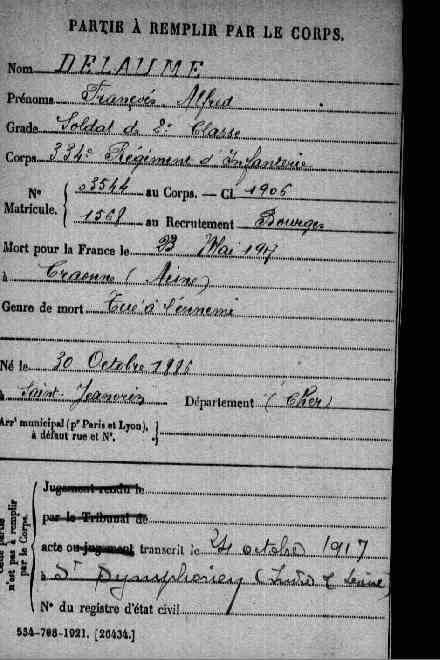 PARTIE À REMPLIR PAR LE CORPS.
Nom DELAUME
Prénoms François Alfred
Grade Soldat de 2e Classe
Corps 334e Régiment d'Infanterie
N° Matricule. { 03544 au Corps. — Cl. 1906
1568 au Recrutement Bourges
Mort pour la France le 23 Mai 1917
à Craonne (Aisne)
Genre de mort Tué à l'ennemi
Né le 30 Octobre 1886
à Saint- Département (Cher)
Arrt municipal (pr Paris et Lyon), à défaut rue et N°.
Cette partie n'est pas à remplir par le Corps.
Jugement rendu le
par le Tribunal de
acte ou jugement transcrit le 24 octobre 1917
à St Symphorien (Indre & Loire)
N° du registre d'état civil
534-708-1921. [26434.]